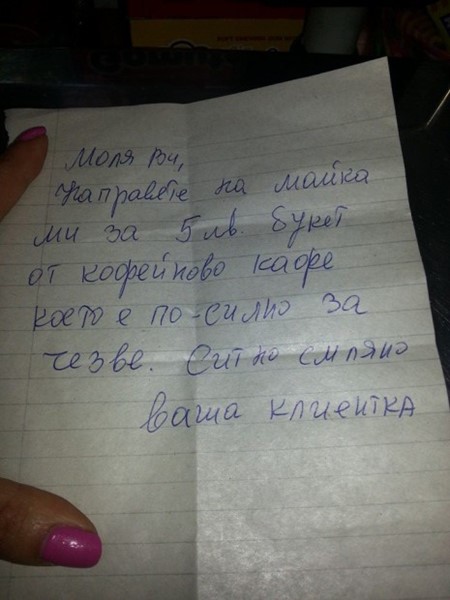 Моля Ви,
Направете на майка
ми за 5 лв. букет
от кофейново кафе
което е по-силно за
чезве. Ситно смляно
Ваша клиентка